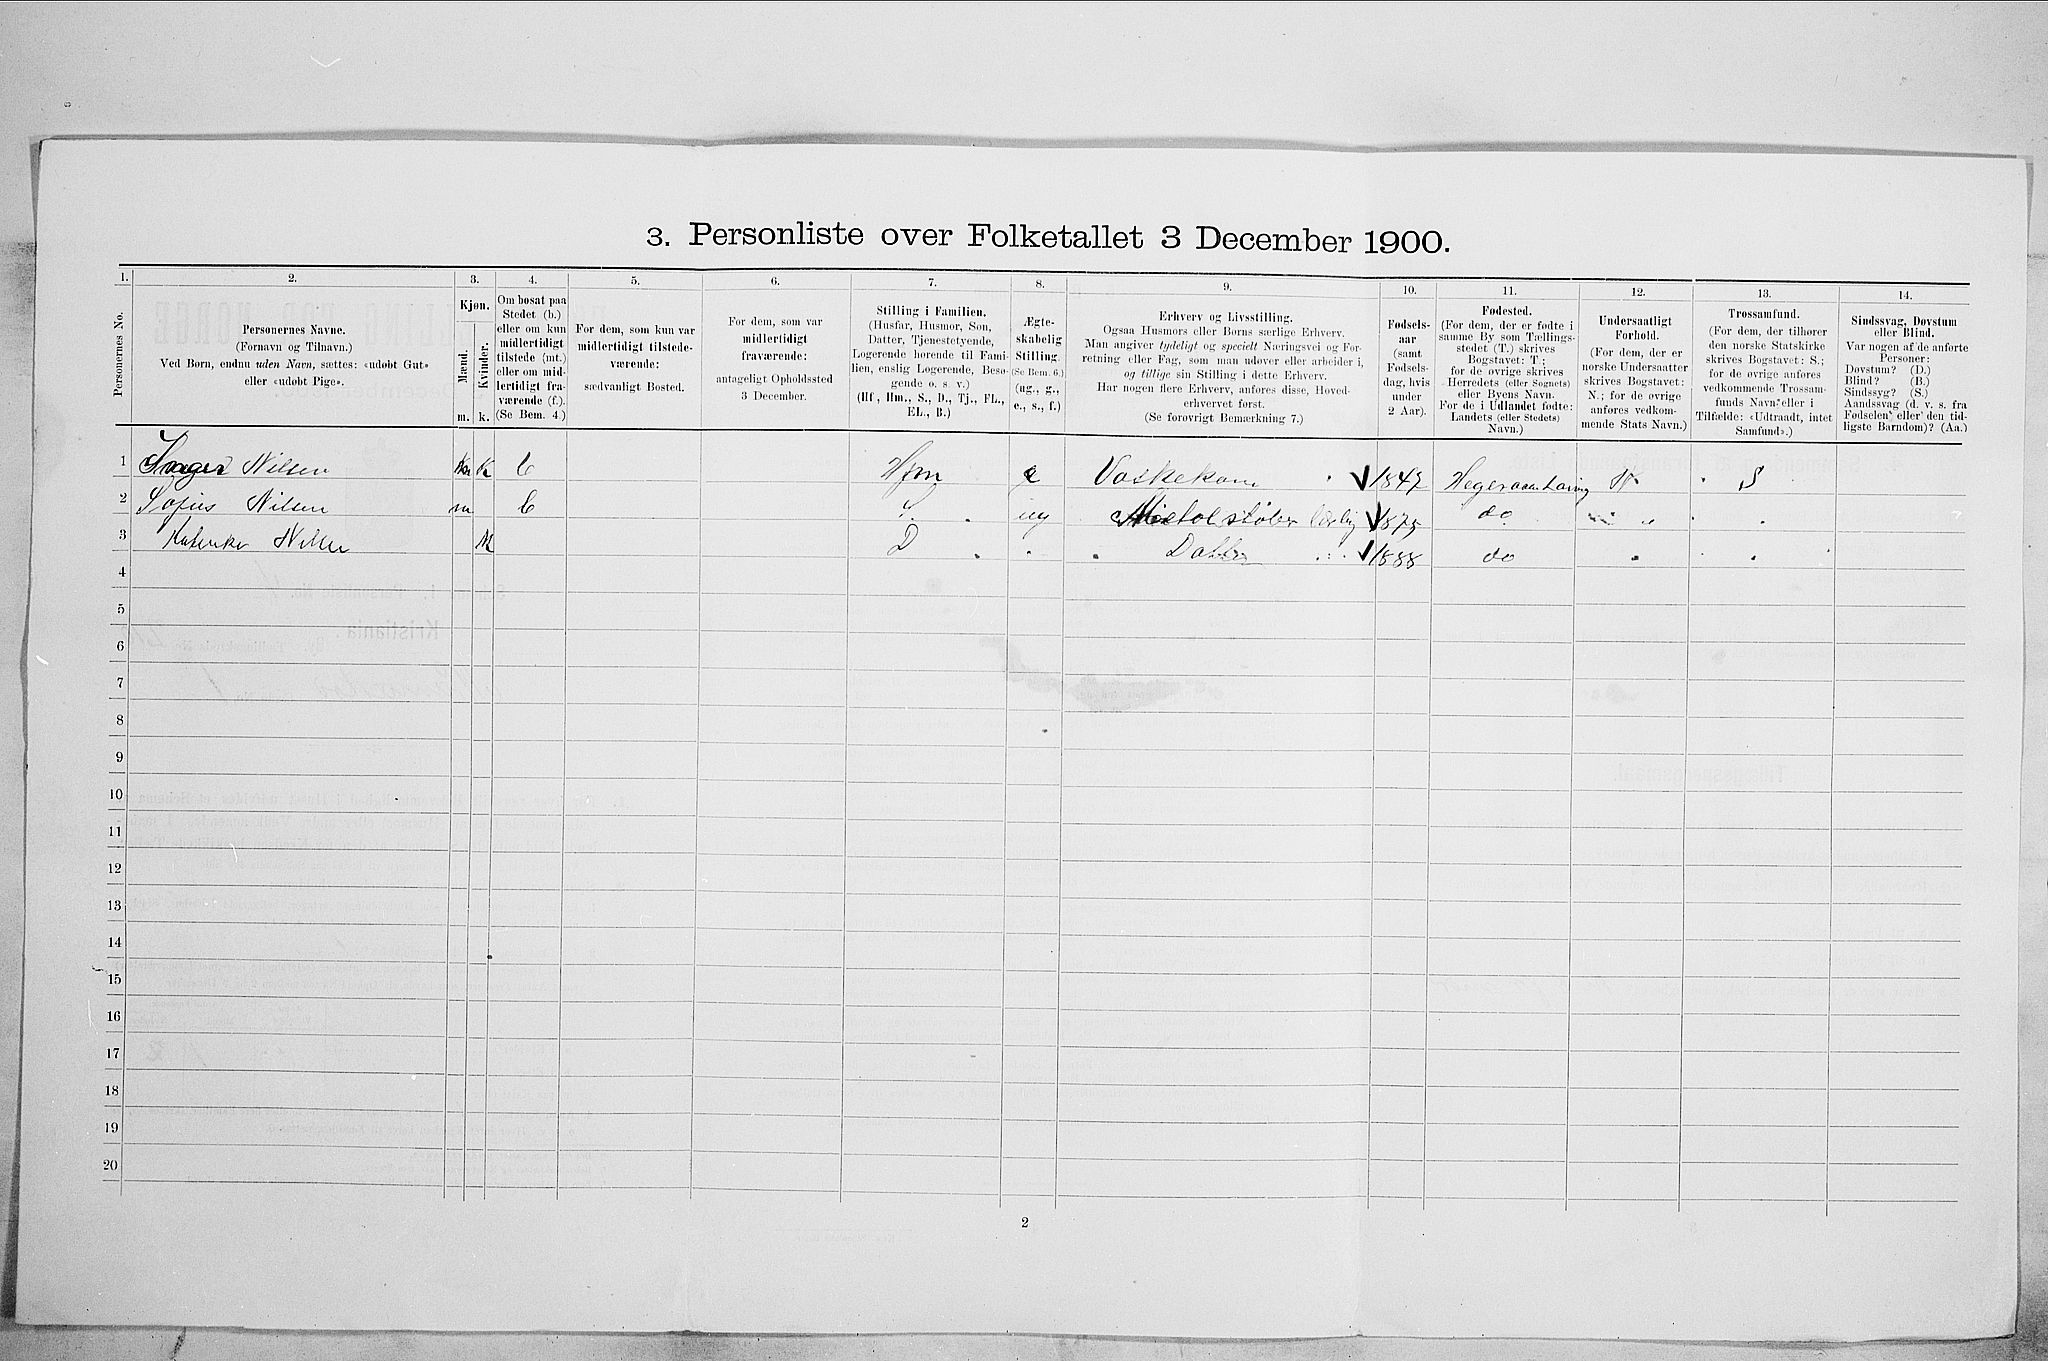 3. Personliste over Folketallet 3 December 1900.
1. 2. 3. 4. 5. 6. 7. 8. 9. 10. 11. 12. 13. 14.
Personernes No.
Personernes Navne.
(Fornavn og Tilnavn.)
Ved Børn, endnu uden Navn, sættes: «udøbt Gut»
eller «udøbt Pige».
Kjøn.
Mænd.
Kvinder.
m. k.
Om bosat paa
Stedet (b.)
eller om kun
midlertidigt
tilstede (mt.)
eller om mid-
lertidigt fra-
værende (f.).
(Se Bem. 4.)
For dem, som kun var
midlertidigt tilstede-
værende:
sædvanligt Bosted.
For dem, som var
midlertidigt
fraværende:
antageligt Opholdssted
3 December.
Stilling i Familien.
(Husfar, Husmor, Søn,
Datter, Tjenestetyende,
Logerende hørende til Fami-
lien, enslig Logerende, Besø-
gende o. s. v.)
(Hf., Hm., S., D., Tj., FL.,
EL., B.)
Ægte-
skabelig
Stilling.
(Se Bem. 6.)
(ug., g.,
e., s., f.)
Erhverv og Livsstilling.
Ogsaa Husmors eller Børns særlige Erhverv.
Man angiver tydeligt og specielt Næringsvei og For-
retning eller Fag, som man udøver eller arbeider i,
og tillige sin Stilling i dette Erhverv.
Har nogen flere Erhverv, anføres disse, Hoved-
erhvervet først.
(Se forøvrigt Bemærkning 7.)
Fødsels-
aar
(samt
Fødsels-
dag, hvis
under
2 Aar).
Fødested.
(For dem, der er fødte i
samme By som Tællings-
stedet (T.) skrives
Bogstavet: T.;
for de øvrige skrives
Herredets (eller Sognets)
eller Byens Navn.
For de i Udlandet fødte:
Landets (eller Stedets)
Navn.)
Undersaatligt
Forhold.
(For dem, der er
norske Undersaatter
skrives Bogstavet:
N.; for de øvrige
anføres vedkom-
mende Stats Navn.)
Trossamfund.
(For dem, der tilhører
den norske Statskirke
skrives Bogstavet: S.;
for de øvrige anføres
vedkommende Trossam-
funds Navn eller i
Tilfælde: «Udtraadt, intet
Samfund».)
Sindssvag, Døvstum
eller Blind.
Var nogen af de anførte
Personer:
Døvstum? (D.)
Blind? (B.)
Sindssyg? (S.)
Aandssvag (d. v. s. fra
Fødselen eller den tid-
ligste Barndom)? (Aa.)
1 Nilsen K b Hm e Vaskekone 1847 N S
2 Sofus Nilsen m b S ug 1875 do "
3 D Datter 1888 do
4
5
6
7
8
9
10
11
12
13
14
15
16
17
18
19
20
2